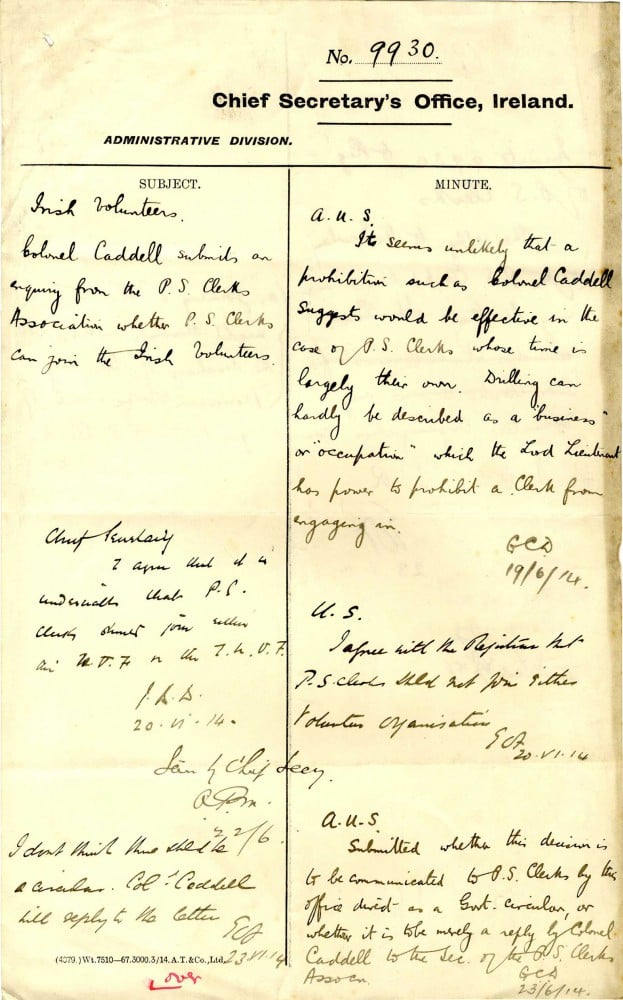 No. 9930.
Chief Secretary's Office, Ireland.
ADMINISTRATIVE DIVISION.
SUBJECT.
Irish Volunteers.
Colonel Caddell submits an
enquiry from the P.S. Clerks
Association whether P.S. Clerks
can join the Irish Volunteers.
Chief Secretary
I agree that it is
undesirable that P.S.
Clerks should join either
the U.V.F. or the I.N.V.F.
J.B.D.
20-VI-14.
Seen by Chief Secy.
22/6.
I dont think there shld be
a circular. Col. Caddell
will reply to the letter
23.VI.14
(4079.) Wt. 7510—67.3000.3/14. A.T. & Co., Ltd.
over
MINUTE.
A.U.S.
It seems unlikely that a
prohibition such as Colonel Caddell
suggests would be effective in the
case of P.S. Clerks whose time is
largely their own. Drilling can
hardly be described as a "business"
or "occupation" which the Lord Lieutenant
has power to prohibit a Clerk from
engaging in.
GCD
19/6/14.
U.S.
I agree with the Registrar that
P.S. clerks shld not join either
Volunteer organisation
20.VI.14
A.U.S.
Submitted whether this decision is
to be communicated to P.S. Clerks by this
office direct as a Govt. circular, or
whether it is to be merely a reply by Colonel
Caddell to the Sec. of the P.S. Clerks
Assocn.
GCD
23/6/14.